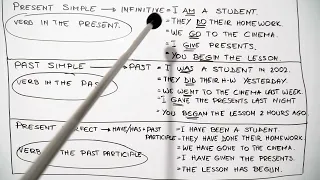 PRESENT SIMPLE → INFINITIVE = I AM A STUDENT.
VERB IN THE PRESENT.
= THEY DO THEIR HOMEWORK.
= WE GO TO THE CINEMA.
= I GIVE PRESENTS.
= YOU BEGIN THE LESSON.
PAST SIMPLE → PAST = I WAS A STUDENT IN 2002.
VERB IN THE PAST
= THEY DID THEIR H-W YESTERDAY.
= WE WENT TO THE CINEMA LAST WEEK.
= I GAVE THE PRESENTS LAST NIGHT
= YOU BEGAN THE LESSON 2 HOURS AGO.
PRESENT PERFECT → HAVE/HAS + PAST PARTICIPLE = I HAVE BEEN A STUDENT.
VERB IN THE PAST PARTICIPLE
= THEY HAVE DONE THEIR HOMEWORK.
= WE HAVE GONE TO THE CINEMA.
= I HAVE GIVEN THE PRESENTS.
= THE LESSON HAS BEGUN.